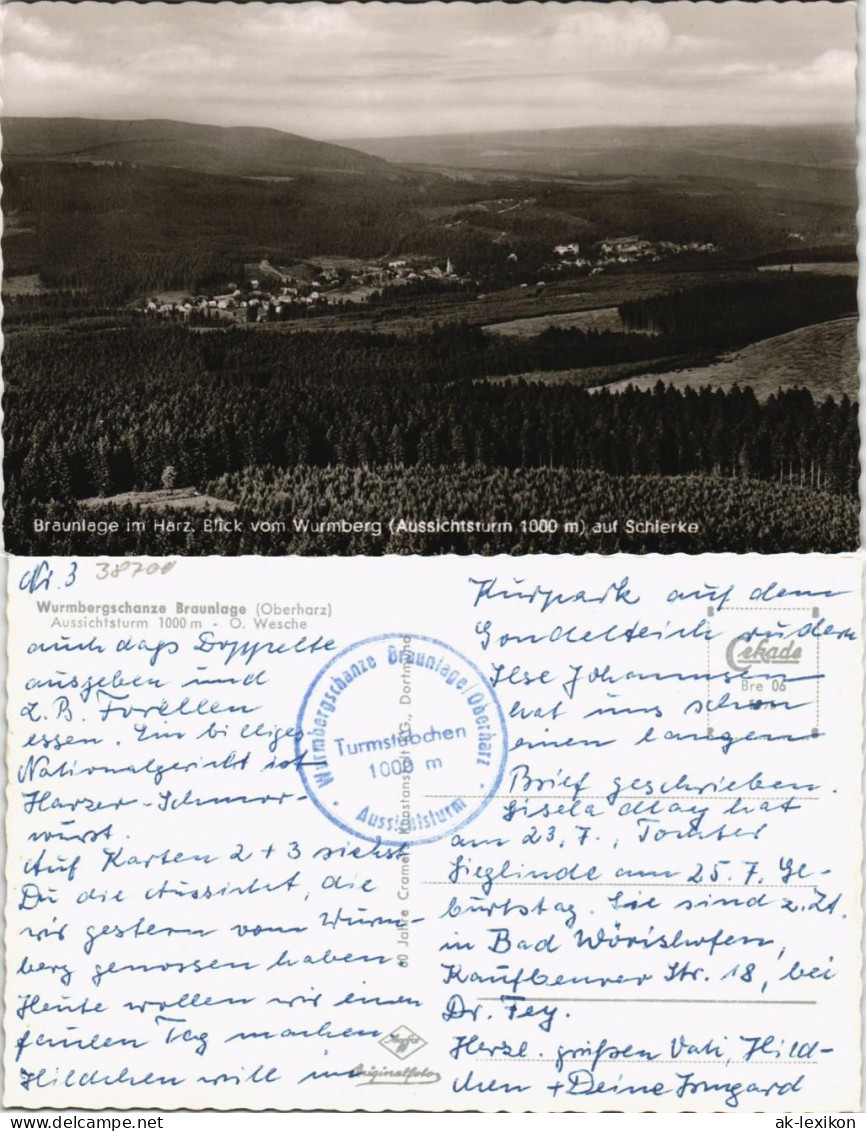 Braunlage im Harz. Blick vom Wurmberg (Aussichtsturm 1000 m) auf Schierke
Nr. 3 38700
Wurmbergschanze Braunlage (Oberharz)
Aussichtsturm 1000 m - O. Wesche
auch dass Doppelte
ausgeben und
z.B. Forellen
essen. Ein billiges
Nationalgericht ist
Harzer-Schmor-
wurst.
Auf Karten 2+3 siehst
Du die Aussicht, die
wir gestern vom Wurm-
berg genossen haben
Heute wollen wir einen
faulen Tag machen
Hildchen will im
Wurmbergschanze Braunlage/Oberharz
Turmstübchen
1000 m
Aussichtsturm
60 Jahre Cramers Kunstanstalt KG., Dortmund
Agfa
Originalfoto
Cekade
Bre 06
Kurpark auf dem
Gondelteich rudern
Ilse Johannsen
hat uns schon
einen langen
Brief geschrieben.
Gisela May hat
am 23.7., Tochter
Sieglinde am 25.7. Ge-
burtstag. Sie sind z. Zt.
in Bad Wörishofen,
Kaufbeurer Str. 18, bei
Dr. Fey.
Herzl. grüßen Vati, Hild-
chen + Deine Irmgard
ak-lexikon